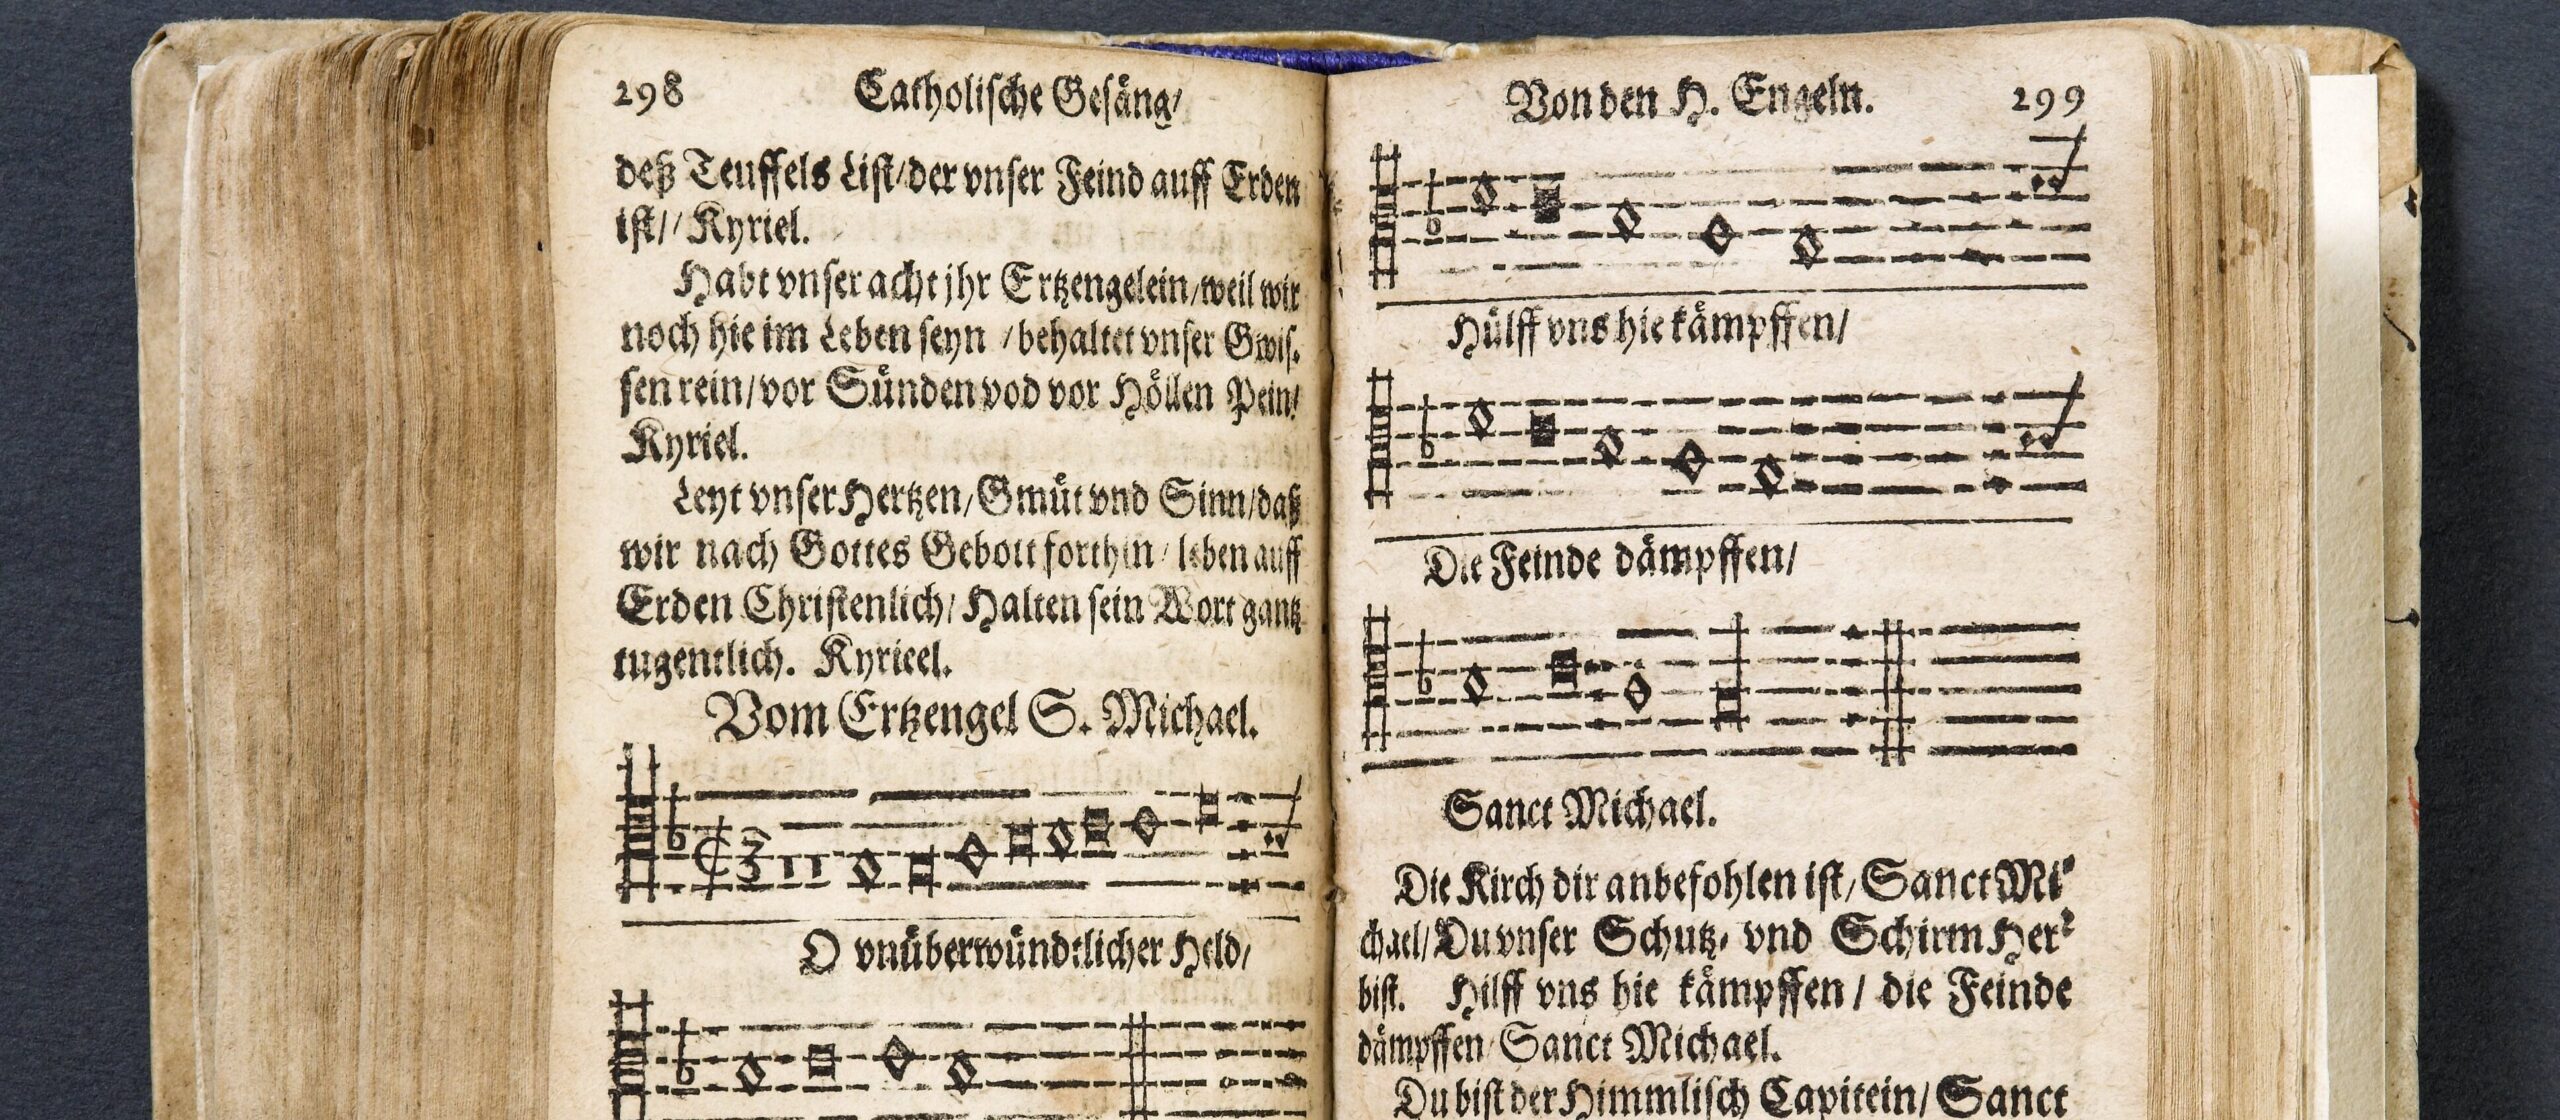 298 Catholische Gesäng/
deß Teuffels List/der vnser Feind auff Erden
ist// Kyriel.
Habt vnser acht jhr Ertzengelein/weil wir
noch hie im Leben seyn /behaltet vnser Gwis-
sen rein/vor Sünden vod vor Höllen Pein/
Kyriel.
Leyt vnser Hertzen/Gmüt vnd Sinn/daß
wir nach Gottes Gebott forthin/ leben auff
Erden Christenlich/Halten sein Wort gantz
tugentlich. Kyrieel.
Vom Ertzengel S. Michael.
O vnüberwündtlicher Held/
Von den H. Engeln. 299
Hülff vns hie kämpffen/
Die Feinde dämpffen/
Sanct Michael.
Die Kirch dir anbefohlen ist/Sanct Mi-
chael/Du vnser Schutz- vnd Schirm Her-
bist. Hilff vns hie kämpffen / die Feinde
dämpffen Sanct Michael.
Du bist der Himmlisch Capitein/Sanct